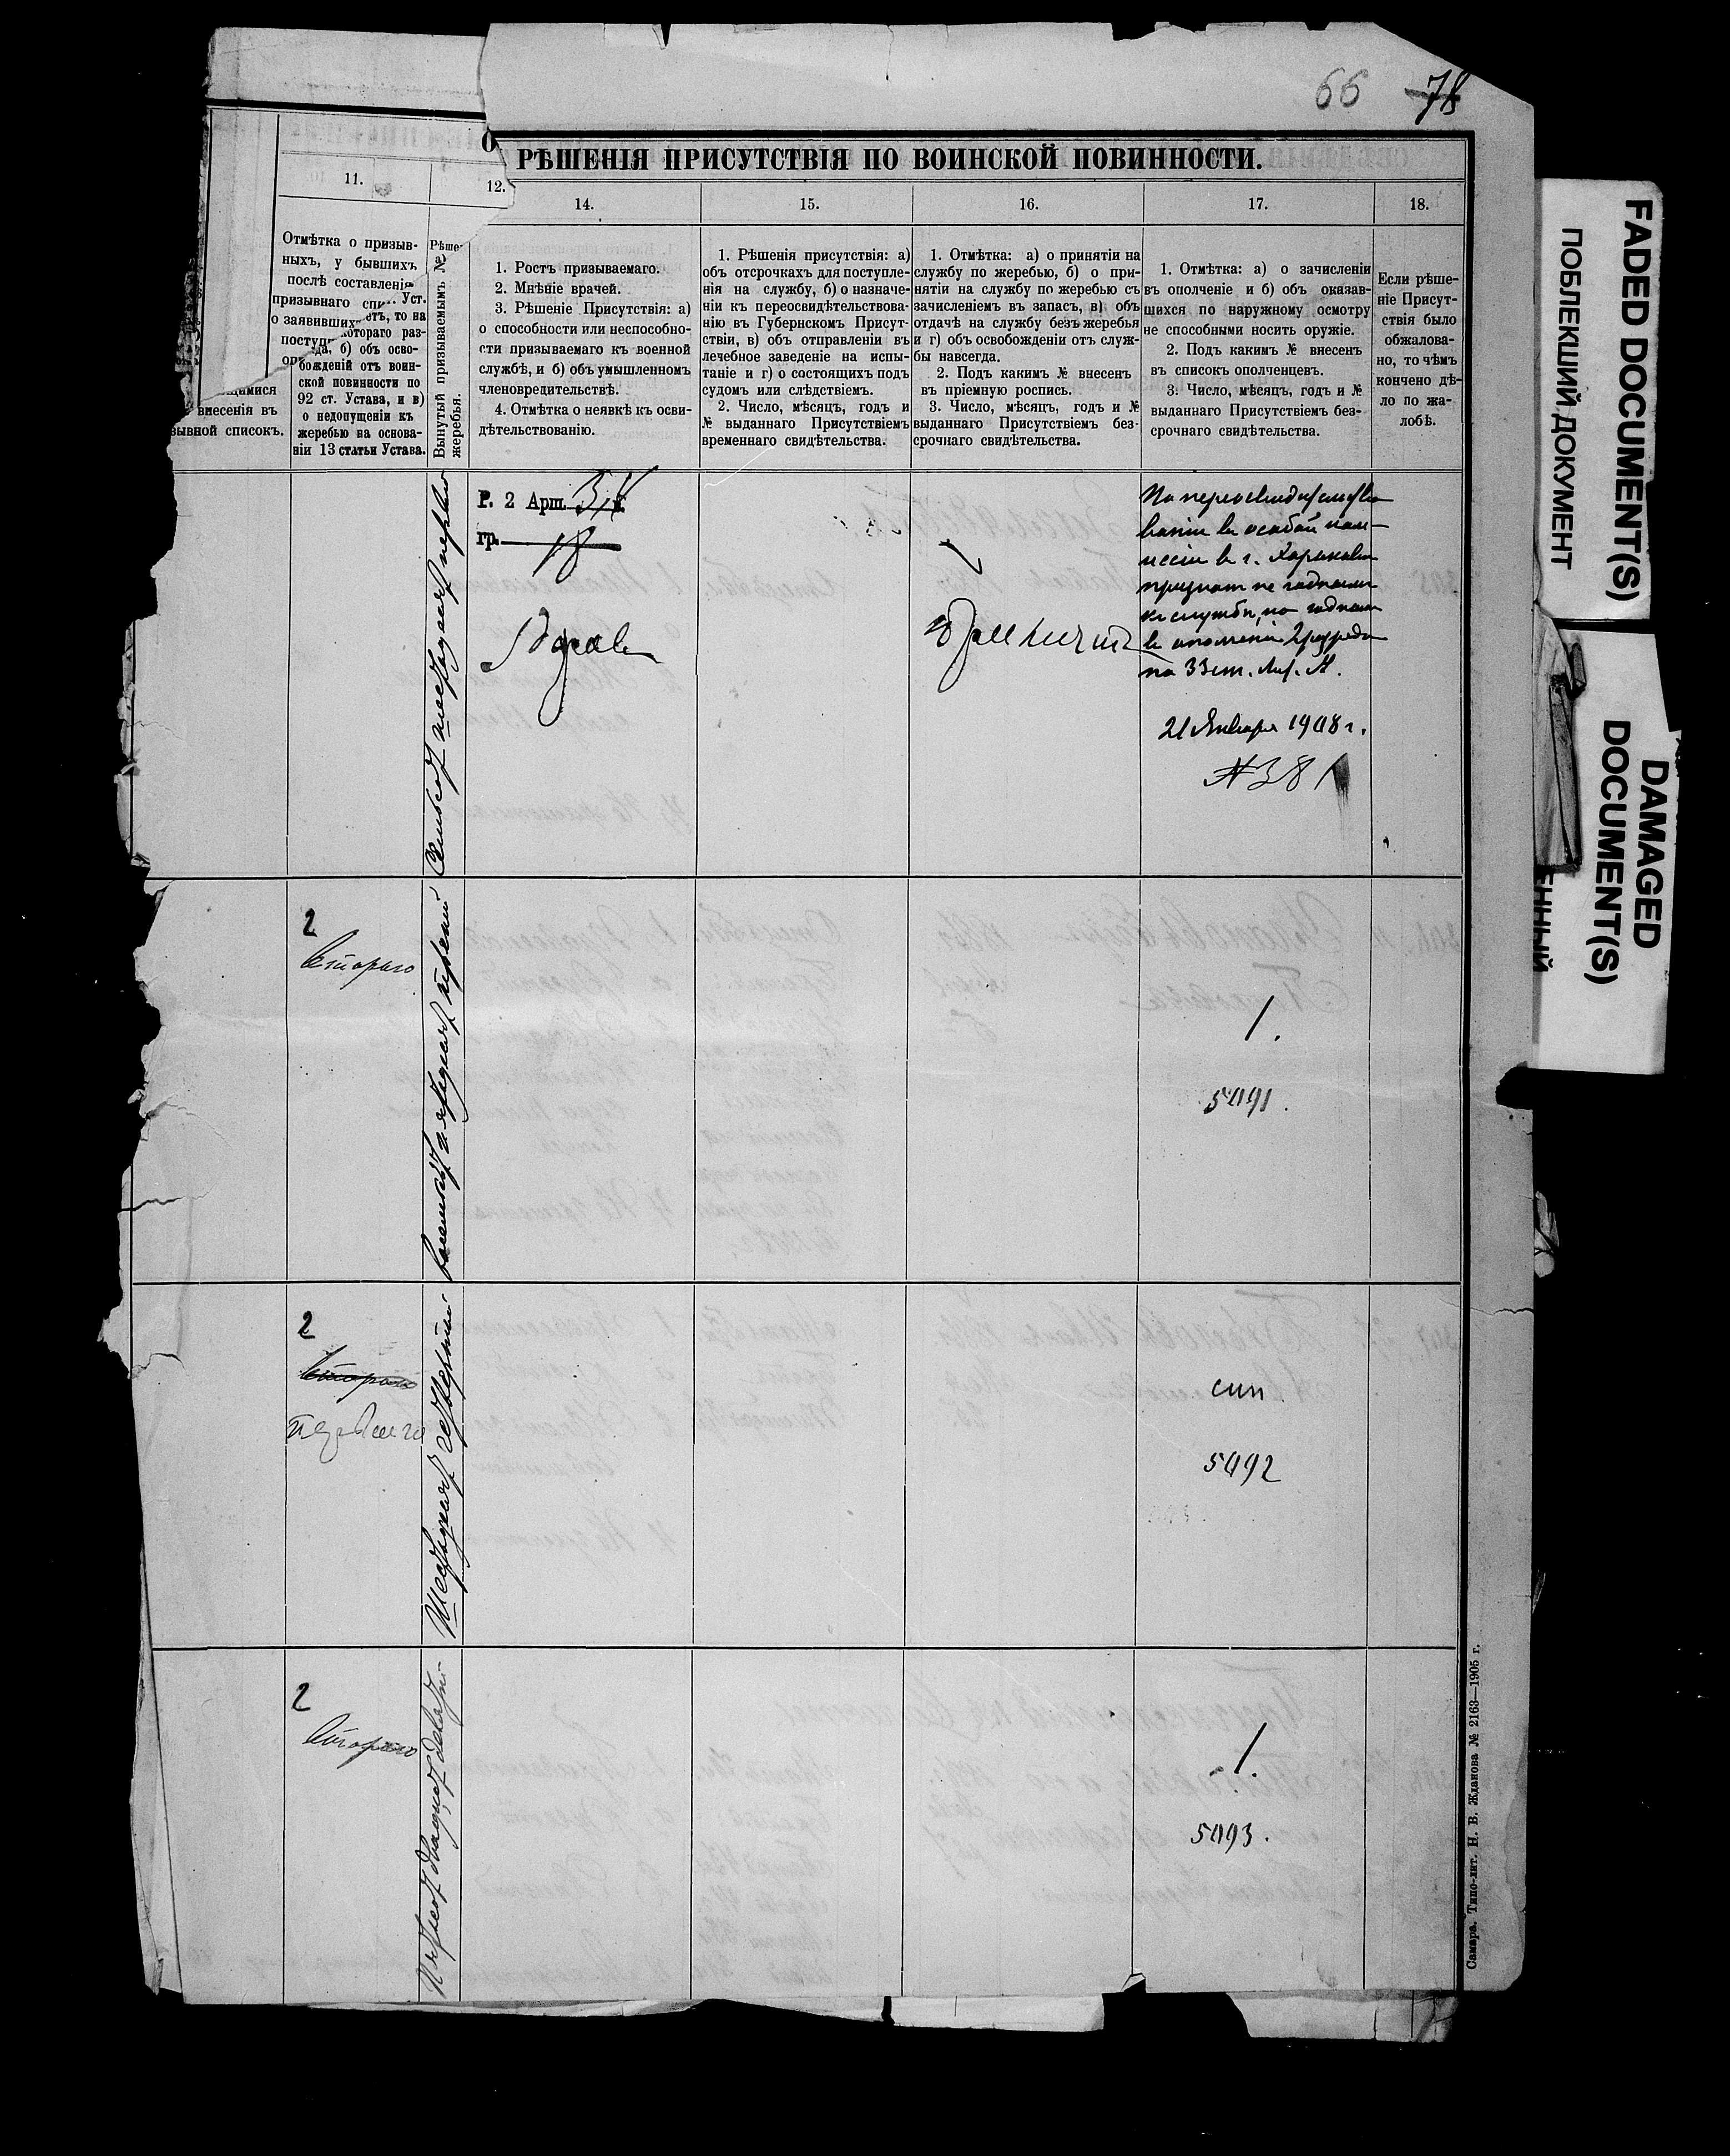 66 78
РѢШЕНІЯ ПРИСУТСТВІЯ ПО ВОИНСКОЙ ПОВИННОСТИ.
11.
12.
14.
15.
16.
17.
18.
щимися
внесенія въ
зывной списокъ.
Отмѣтка о призыв-
ныхъ, у бывшихъ
послѣ составленія
призывнаго спи Уст.
о заявившихъ етъ, то на
поступ котораго раз-
да, б) объ осво-
божденій отъ воин-
ской повинности по
92 ст. Устава, и в)
о недопущеніи къ
жеребью на основа-
ніи 13 статьи Устава.
Рѣше
Вынутый призываемымъ №
жеребья.
1. Ростъ призываемаго.
2. Мнѣніе врачей.
3. Рѣшеніе Присутствія: а)
о способности или неспособно-
сти призываемаго къ военной
службѣ, и б) объ умышленномъ
членовредительствѣ.
4. Отмѣтка о неявкѣ къ осви-
дѣтельствованію.
1. Рѣшенія присутствія: а)
объ отсрочкахъ для поступле-
нія на службу, б) о назначе-
ніи къ переосвидѣтельствова-
нію въ Губернскомъ Присут-
ствіи, в) объ отправленіи въ
лечебное заведеніе на испы-
таніе и г) о состоящихъ подъ
судомъ или слѣдствіемъ.
2. Число, мѣсяцъ, годъ и
№ выданнаго Присутствіемъ
временнаго свидѣтельства.
1. Отмѣтка: а) о принятіи на
службу по жеребью, б) о при-
нятіи на службу по жеребью съ
зачисленіемъ въ запасъ, в) объ
отдачѣ на службу безъ жеребья
и г) объ освобожденіи отъ служ-
бы навсегда.
2. Подъ какимъ № внесенъ
въ пріемную роспись.
3. Число, мѣсяцъ, годъ и №
выданнаго Присутствіемъ без-
срочнаго свидѣтельства.
1. Отмѣтка: а) о зачисленіи
въ ополченіе и б) объ оказав-
шихся по наружному осмотру
не способными носить оружіе.
2. Подъ какимъ № внесенъ
въ списокъ ополченцевъ.
3. Число, мѣсяцъ, годъ и №
выданнаго Присутствіемъ без-
срочнаго свидѣтельства.
Если рѣше-
ніе Присут-
ствія было
обжалова-
но, то чѣмъ
кончено дѣ-
ло по жа-
лобѣ.
Р. 2 Арш.
гр. 18
Здоровъ
шестьдесятъ первый
По переосвидѣтельство
ваніи въ особой ком-
иссіи въ г. Харьковѣ
признанъ не годнымъ
къ службѣ, но годнымъ
въ ополченіе 2 разряда
по 33 ст. Лит. А.
21 Января 1908 г.
№ 381
2
Второго
восемьсотъ пятьдесятъ третій
1.
5091.
2
Второго
перваго
Шестьдесятъ четвертый
син
5092
2
Второго
Пятьсотъ двадцать девятый
1.
5093.
Самара. Типо-лит. Н. В. Жданова № 2163—1905 г.
FADED DOCUMENT(S)
ПОБЛЕКШИЙ ДОКУМЕНТ
DAMAGED
DOCUMENT(S)
ЕННЫЙ